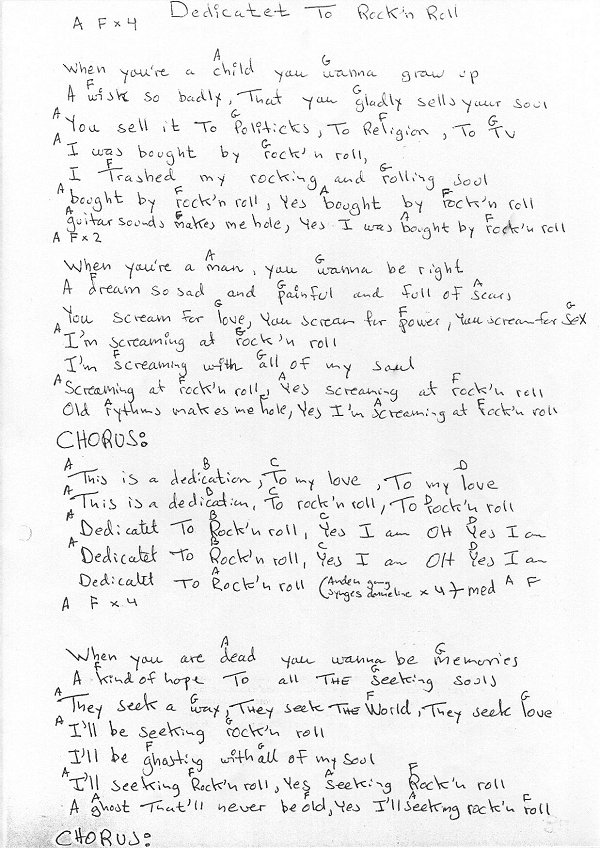 Dedicatet To Rock'n Roll
A F x 4
A G
When you're a child you wanna grow up
F G
A wish so badly, That you gladly sells your soul
A G F G
You sell it To Politicks, To Religion, To TV
A G
I was bought by rock'n roll,
F G
I Trashed my rocking and rolling soul
A F A F
bought by rock'n roll, Yes bought by rock'n roll
A F A F
guitar sounds makes me hole, Yes I was bought by rock'n roll
A F x 2
A G
When you're a man, you wanna be right
F G A
A dream so sad and painful and full of scars
G F G
You scream for love, You scream for power, You scream for sex
A G
I'm screaming at rock'n roll
F G
I'm screaming with all of my soul
A F A F
Screaming at rock'n roll, Yes screaming at rock'n roll
A F A F
Old rythms makes me hole, Yes I'm screaming at rock'n roll
CHORUS:
A B C D
This is a dedication, To my love, To my love
A B C D
This is a dedication, To rock'n roll, To rock'n roll
A B C D
Dedicatet To Rock'n roll, Yes I am OH Yes I am
A B C D
Dedicatet To Rock'n roll, Yes I am OH Yes I am
A
Dedicatet To Rock'n roll (Anden gang synges denne line x 4) med A F
A F x 4
A G
When you are dead you wanna be memories
F G
A kind of hope To all THE seeking souls
A G F G
They seek a way, They seek THE World, They seek love
A G
I'll be seeking rock'n roll
F G
I'll be ghosting with all of my soul
A F A F
I'll seeking Rock'n roll, Yes seeking Rock'n roll
A F A F
A ghost That'll never be old, Yes I'll seeking rock'n roll
CHORUS: